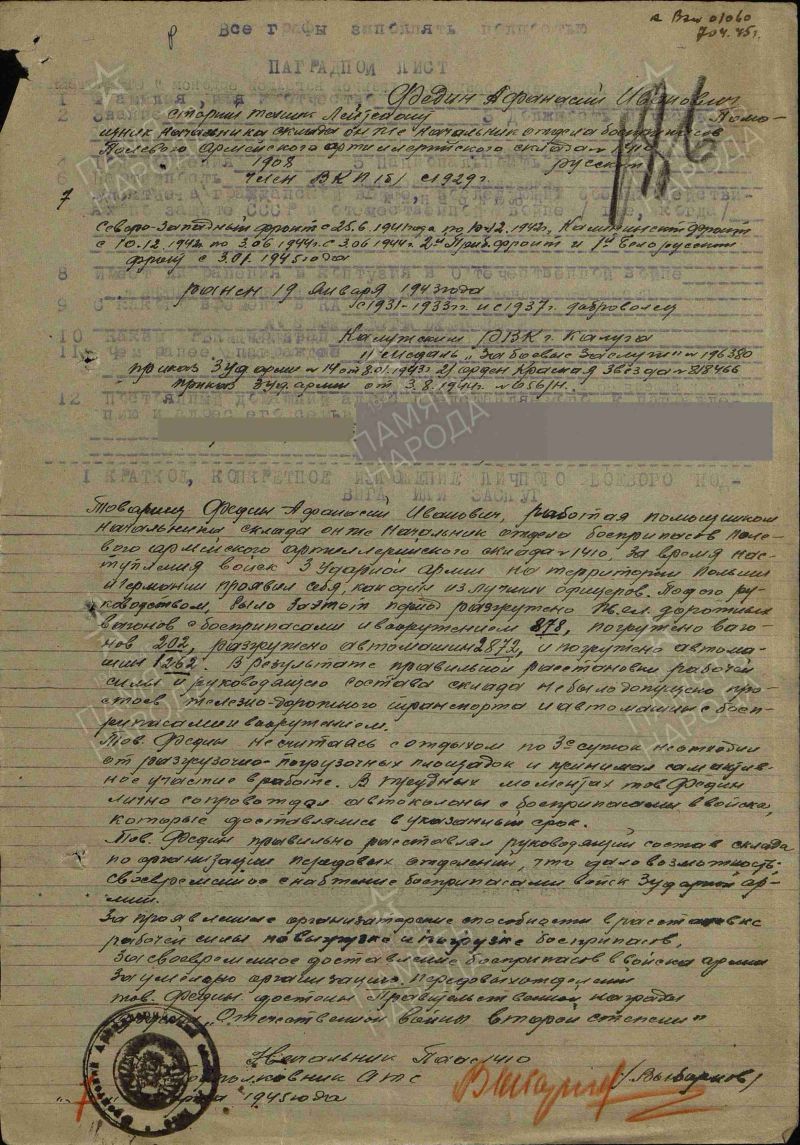 к Вх 01060
7.04.45г.
Все графы заполнять полностью
НАГРАДНОЙ ЛИСТ
1 Фамилия, имя и отчество Федин Афанасий Иванович
2 Звание старший техник лейтенант 3 Должность Помо-
щник начальника склада он же начальник отдела боеприпасов
Полевого Армейского артиллерийского склада № 1410
1908 русский
6 член ВКП/б/ с 1929г.
7
Северо-Западный фронт с 25.6.1941 года по 10.12.1942г., Калининский фронт
с 10.12.1942г. по 3.06 1944г. с 3.06 1944г. 2й Приб. фронт и 1й Белорусский
фронт с 3.01.1945 года
8 ранения и контузии в отечественной войне
ранен 19 января 1943 года
9 с 1931-1933гг. и с 1937г. доброволец
10 Каким Калужским РВК г. Калуга
11 Чем ранее 1/ Медаль „За боевые Заслуги" № 196380
приказ 3 уд армии № 14 от 8.01.1943г. 2/ орден Красная Звезда № 818466
приказ 3 уд. армии от 3.8.1944г. № 056/н.
12 Постоянный домашний адрес
I КРАТКОЕ, КОНКРЕТНОЕ ИЗЛОЖЕНИЕ ЛИЧНОГО БОЕВОГО ПОД-
ВИГА ИЛИ ЗАСЛУГ
Товарищ Федин Афанасий Иванович, работая помощником
начальника склада он же начальник отдела боеприпасов поле-
вого армейского артиллерийского склада № 1410, за время нас-
тупления войск 3 Ударной армии на территории Польши
и Германии проявил себя, как один из лучших офицеров. Под его ру-
ководством, было за этот период разгружено жел. дорожных
вагонов с боеприпасами и вооружением 878, погружено ваго-
нов 202, разгружено автомашин 2872, и погружено автома-
шин 1262. В результате правильной расстановки рабочей
силы и руководящего состава склада не было допущено про-
стоев железно-дорожного транспорта и автомашин с боеп-
рипасами и вооружением.
Тов. Федин не считаясь с отдыхом по 3е суток не отходил
от разгрузочно-погрузочных площадок и принимал сам актив-
ное участие в работе. В трудных моментах тов Федин
лично сопровождал автоколоны с боеприпасами в войска,
которые доставлялись в указанный срок.
Тов. Федин правильно расставлял руководящий состав склада
по организации передовых отделений, что дало возможность
своевременное снабжение боеприпасами войск 3 ударной ар-
мии.
За проявленные организаторские способности в расстановке
рабочей силы по выгрузке и погрузке боеприпасов,
За своевременное доставление боеприпасов в войска армии
За умелою организацию передовых отделений
тов. Федин достоин Правительственной награды
„Отечественной войны второй степени"
Начальник ПААС 1410
Подполковник АТС /Выборнов/
1945 года
ПАМЯТЬ
НАРОДА